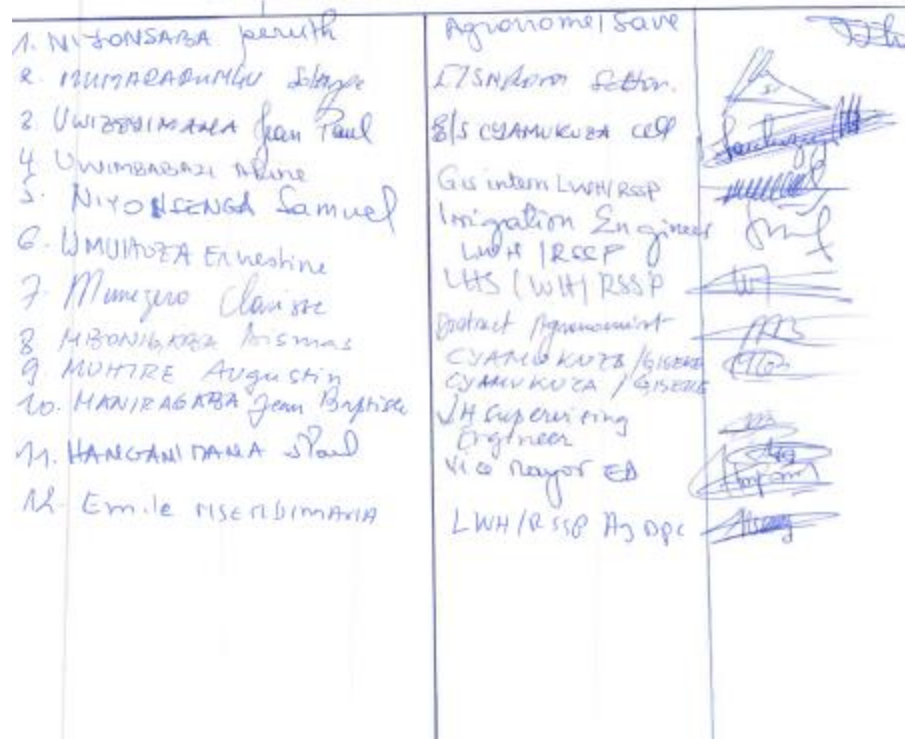 1. NIYONSABA peruth Agronome/Save
2. MUMARARUNGU Solange E/S Sector.
3. UWIZEYIMANA Jean Paul E/S CYAMUKUZA cell
4. UWIMBABAZI Aline Gis intern LWH/RSSP
5. NIYONSENGA Samuel Irrigation Engineer
LWH/RSSP
6. UMUHOZA Ernestine LHS LWH/RSSP
7. Munezero Clarisse District Agronomist
8 MBONIGABA Dismas CYAMUKUZA /GISEKE
9. MUHIRE Augustin CYAMUKUZA /GISEKE
10. MANIRAGABA Jean Baptiste JH Supervising
Engineer
11. HANGANIMANA Paul Vice Mayor ED
12. Emile NSENDIMANA LWH/RSSP Ag DPC